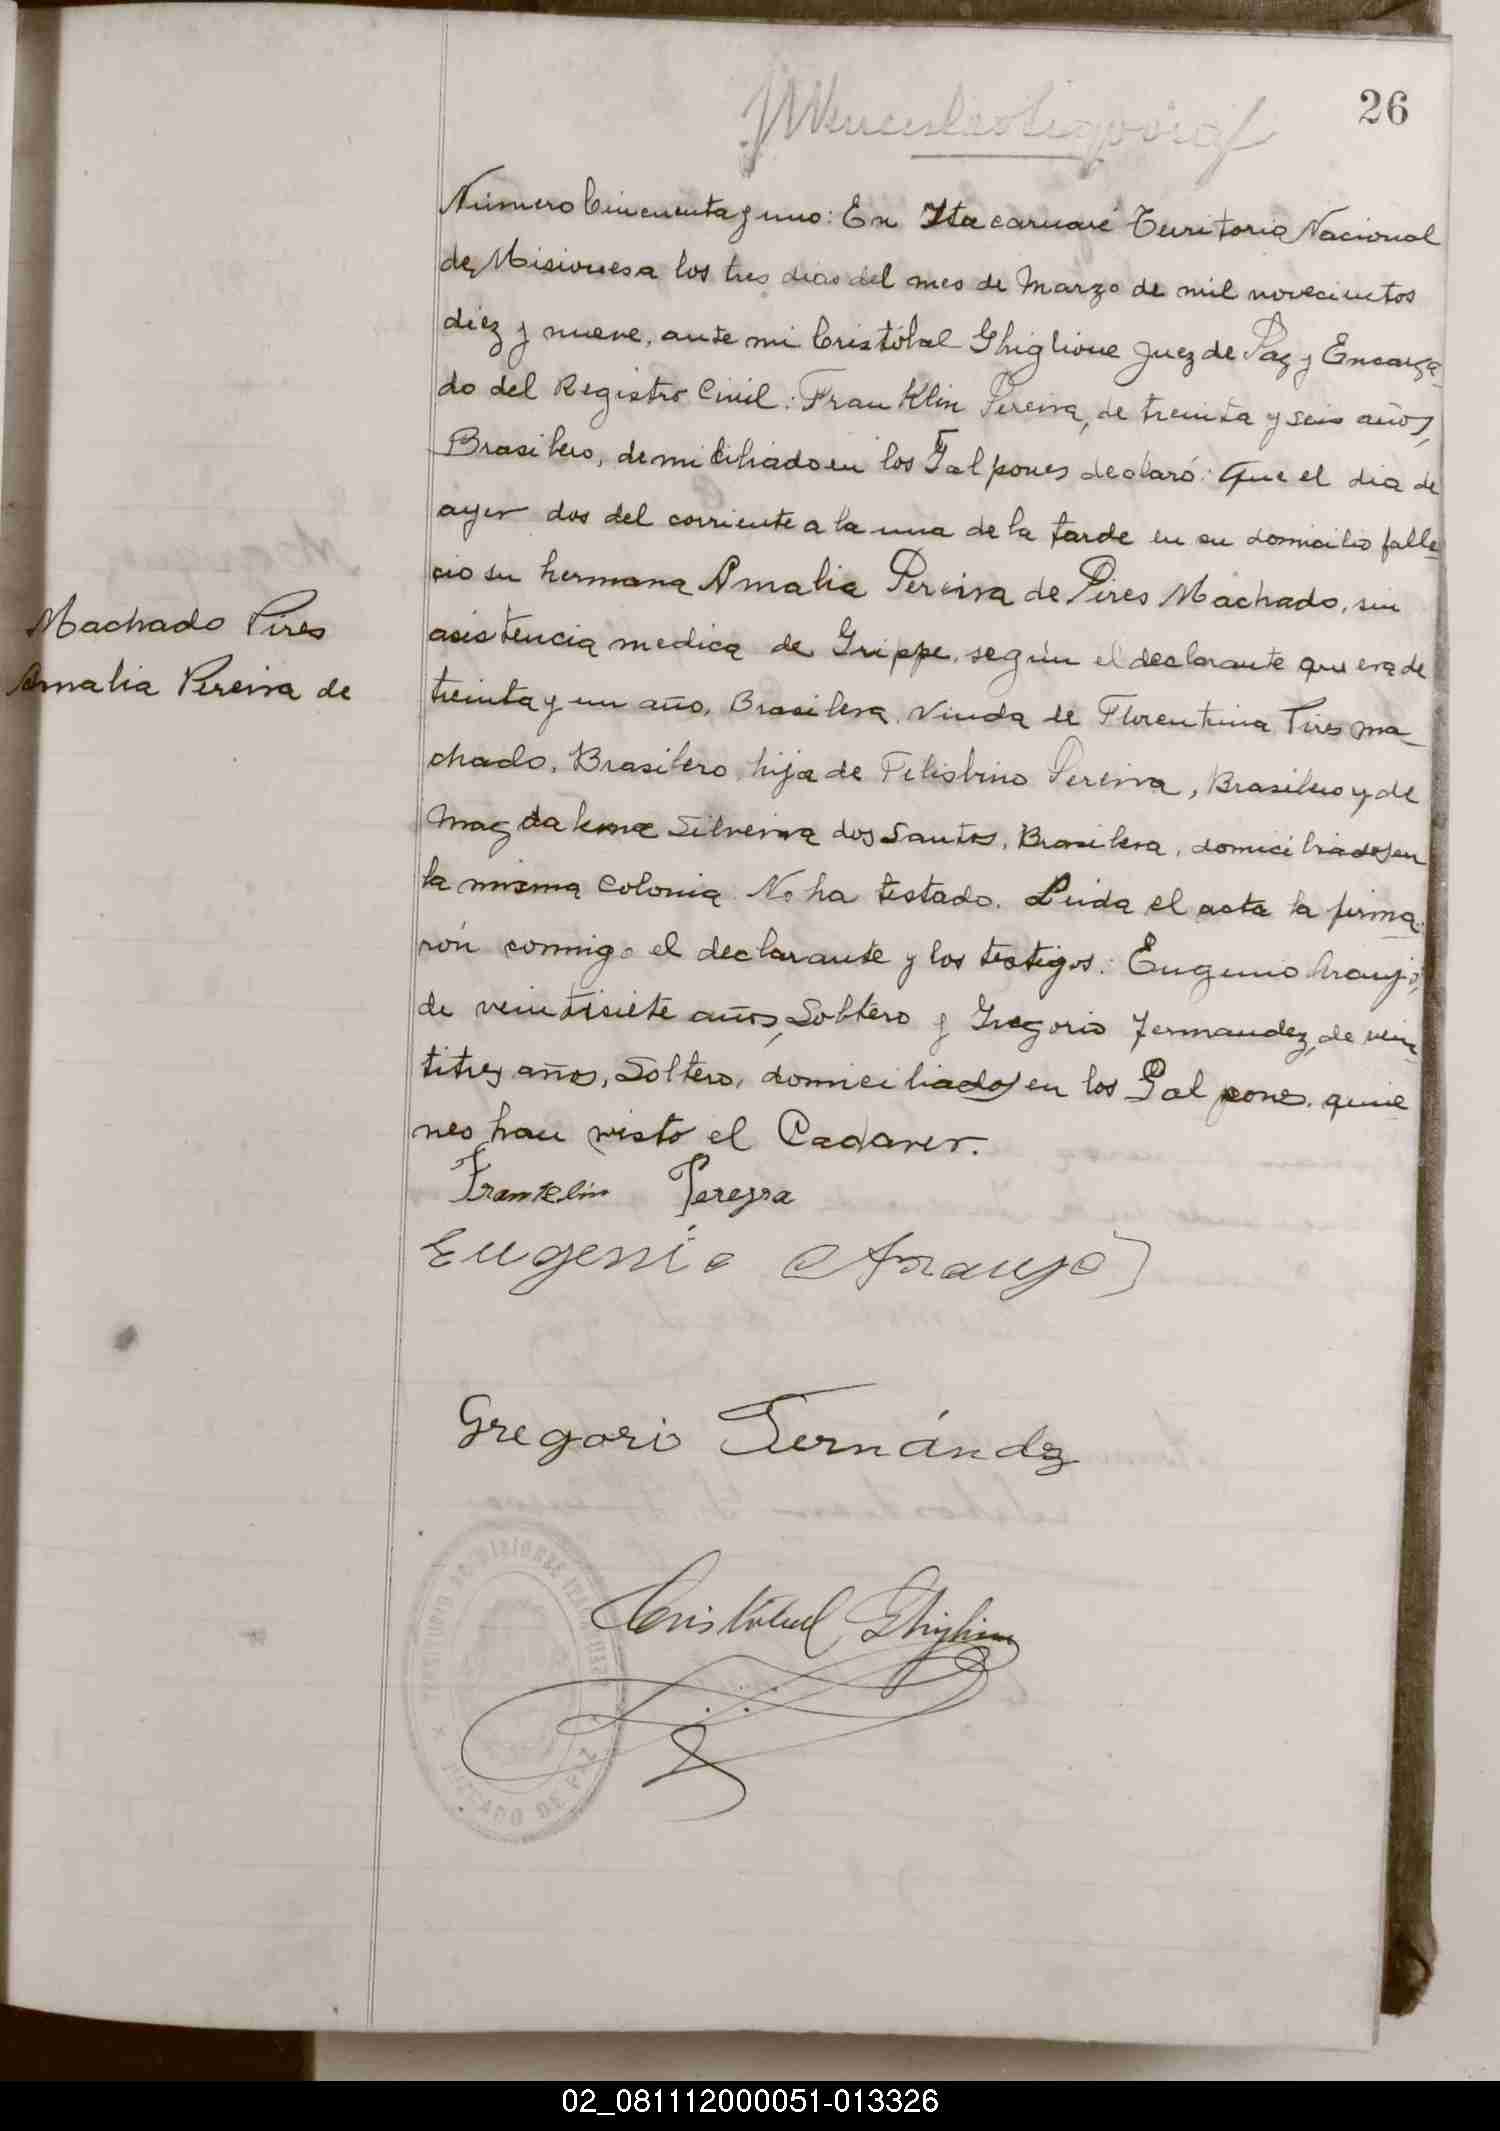 26
Número Cincuenta y uno: En Itacaruaré Territorio Nacional
de Misiones a los tres dias del mes de Marzo de mil novecientos
diez y nueve, ante mi Cristóbal Ghiglione Juez de Paz y Encarga-
do del Registro Civil: Franklin Pereira, de treinta y seis años,
Brasilero, demiciliado en los Galpones declaró: Que el dia de
ayer dos del corriente a la una de la tarde en su domicilio falle
cio su hermana Amalia Pereira de Pires Machado, sin
Machado Pires
Amalia Pereira de
asistencia medica de Grippe, según el declarante que era de
treinta y un año, Brasilera, Viuda de Florentina Pires Ma-
chado, Brasilero, hija de Felisbino Pereira, Brasilero y de
Magdalena Silveira dos Santos, Brasilera, domiciliados en
la misma Colonia. No ha testado. Leida el acta la firma-
rón conmigo el declarante y los testigos: Eugenio Araujo,
de veintisiete años, Soltero y Gregorio Fernandez, de vein
titres años, Soltero, domiciliados en los Galpones. quie
nes han visto el Cadaver.
Franklin Pereyra
Eugenio Araujo
Gregorio Fernández
Cristóbal Ghiglione
TERRITORIO DE MISIONES
JUZGADO DE PAZ
02_081112000051-013326